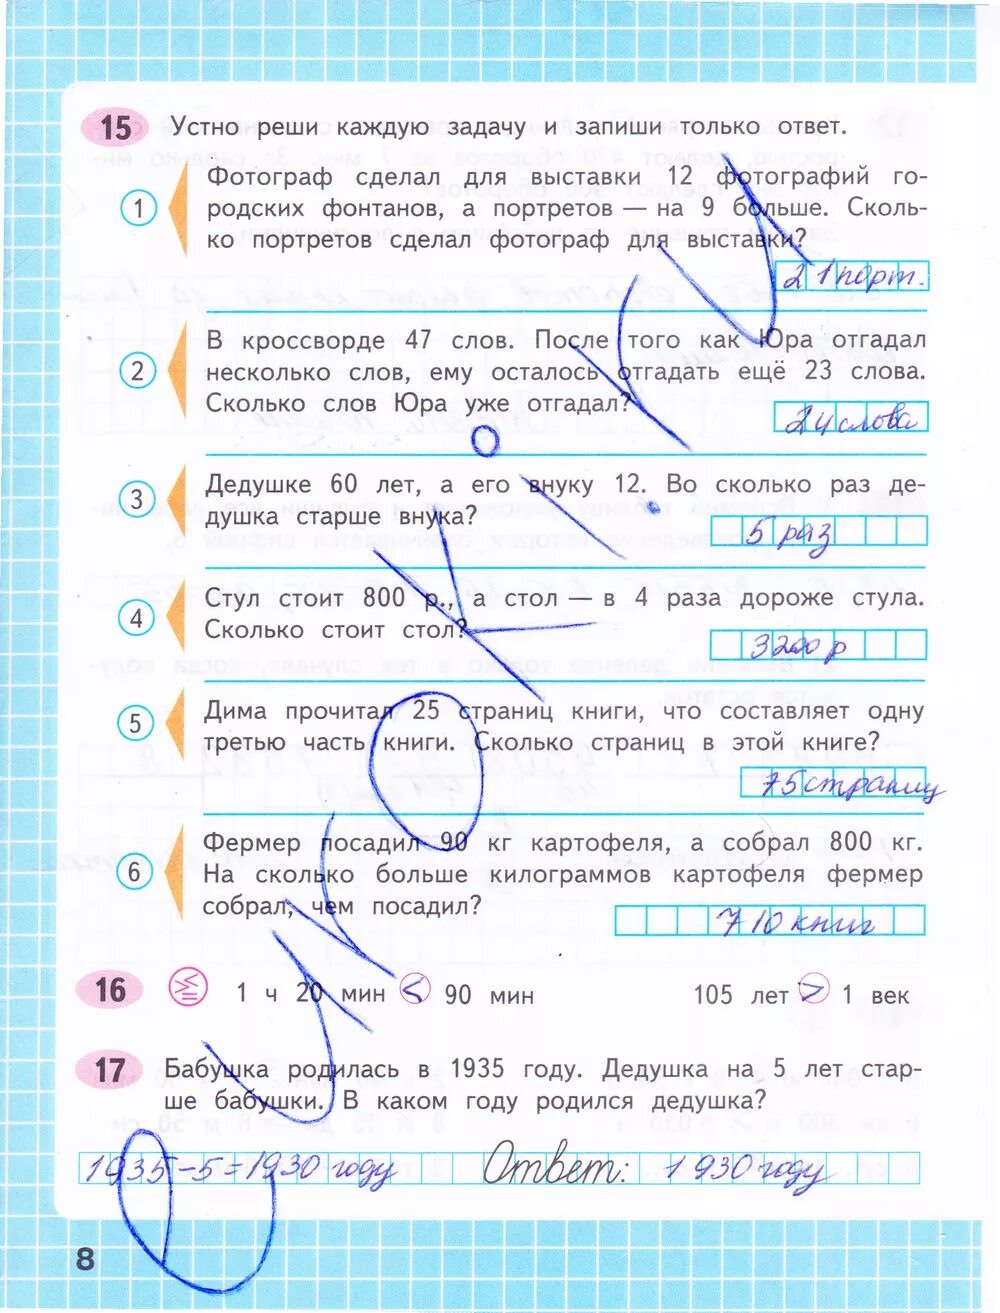 15 Устно реши каждую задачу и запиши только ответ.
1 Фотограф сделал для выставки 12 фотографий го-
родских фонтанов, а портретов — на 9 больше. Сколь-
ко портретов сделал фотограф для выставки?
21 порт.
2 В кроссворде 47 слов. После того как Юра отгадал
несколько слов, ему осталось отгадать ещё 23 слова.
Сколько слов Юра уже отгадал?
24 слова
3 Дедушке 60 лет, а его внуку 12. Во сколько раз де-
душка старше внука?
5 раз
4 Стул стоит 800 р., а стол — в 4 раза дороже стула.
Сколько стоит стол?
3200 р
5 Дима прочитал 25 страниц книги, что составляет одну
третью часть книги. Сколько страниц в этой книге?
75 страниц
6 Фермер посадил 90 кг картофеля, а собрал 800 кг.
На сколько больше килограммов картофеля фермер
собрал, чем посадил?
710 книг
16 1 ч 20 мин < 90 мин 105 лет > 1 век
17 Бабушка родилась в 1935 году. Дедушка на 5 лет стар-
ше бабушки. В каком году родился дедушка?
1935-5=1930 году Ответ: 1930 году
8